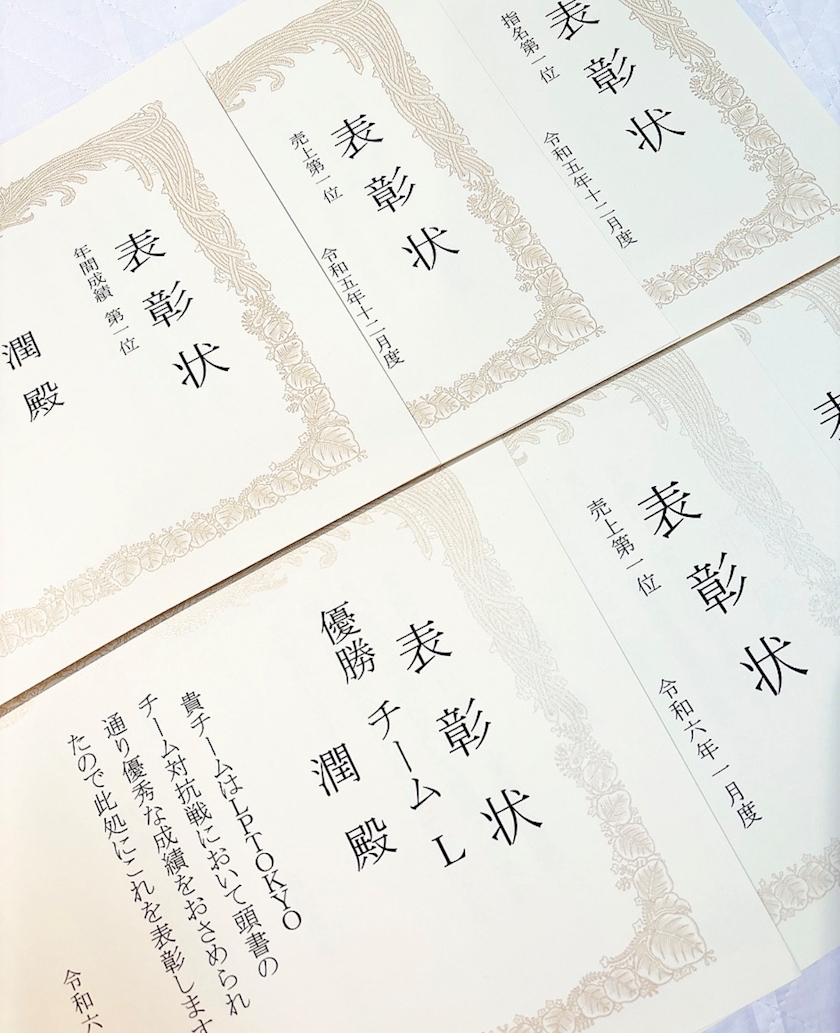 表彰状
指名第一位
令和五年十二月度
表彰状
売上第一位
令和五年十二月度
表彰状
年間成績 第一位
潤殿
表彰状
売上第一位
令和六年一月度
表彰状
優勝 チームL
潤殿
貴チームはLPTOKYO
チーム対抗戦において頭書の
通り優秀な成績をおさめられ
たので此処にこれを表彰します
令和六